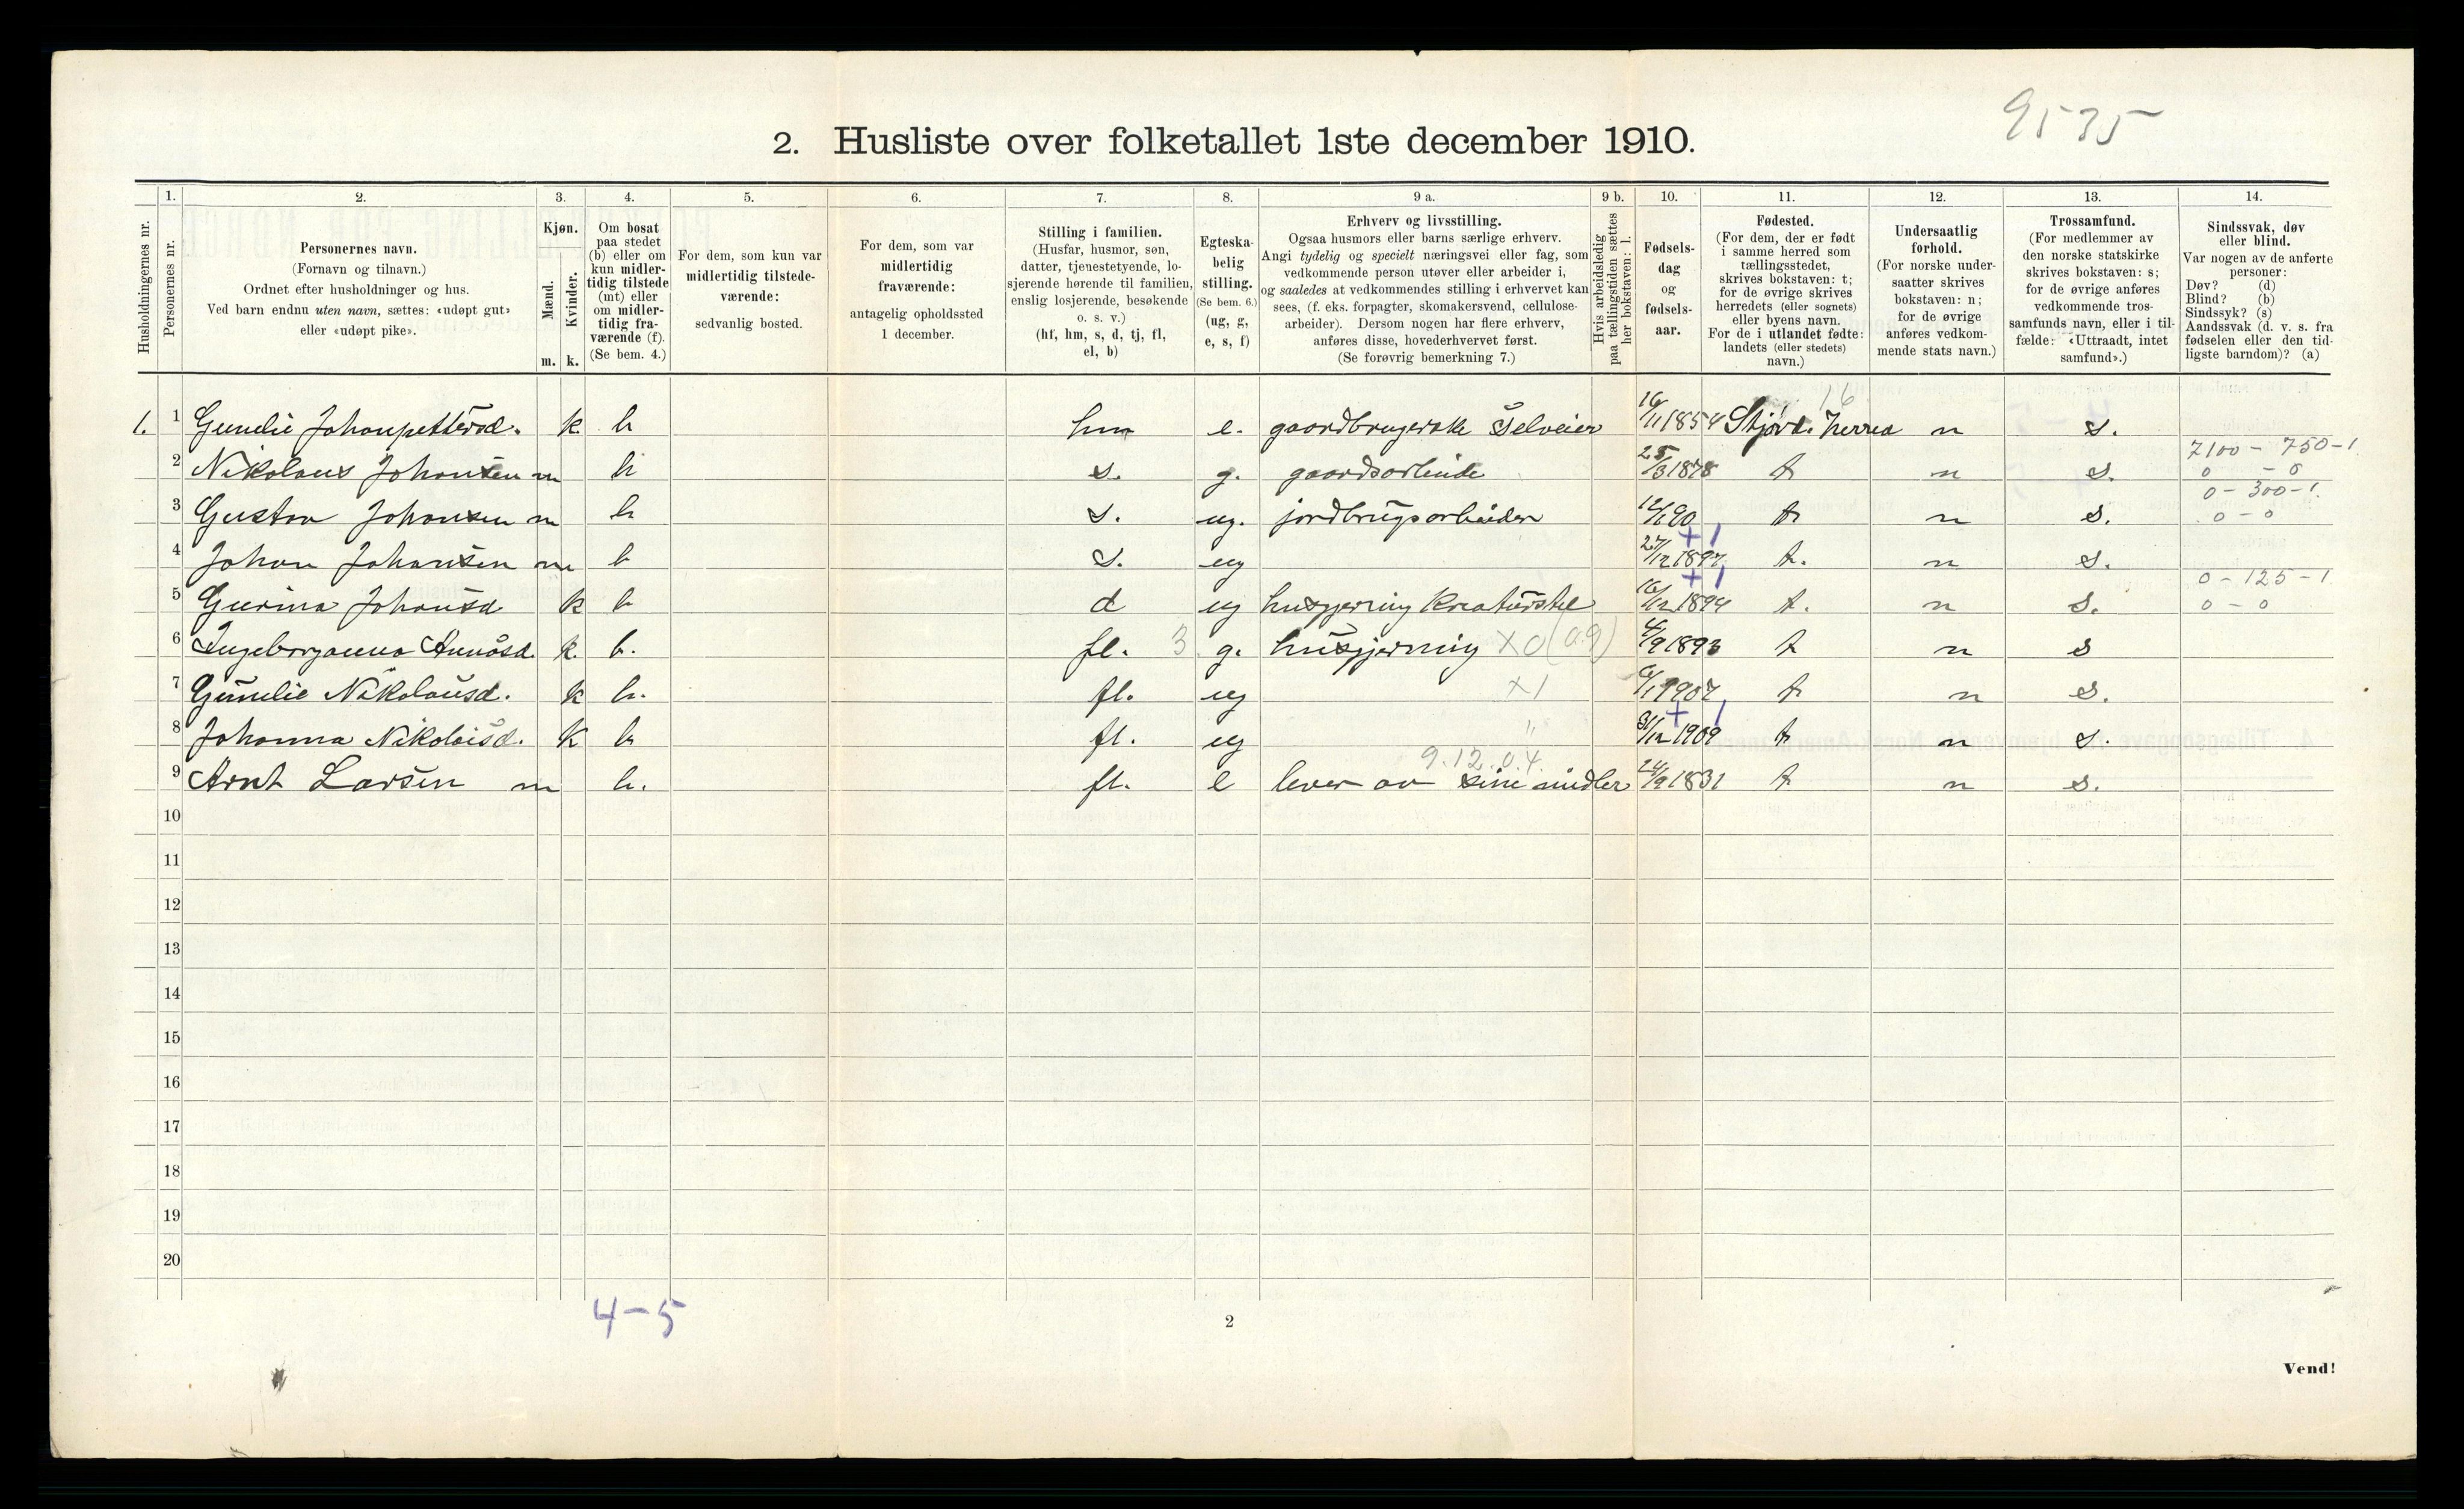 9535
2. Husliste over folketallet 1ste december 1910.
Husholdningernes nr.
1.
Personernes nr.
2.
Personernes navn.
(Fornavn og tilnavn.)
Ordnet efter husholdninger og hus.
Ved barn endnu uten navn, sættes: «udøpt gut»
eller «udøpt pike».
3.
Kjøn.
Mænd. Kvinder.
m. k.
4.
Om bosat
paa stedet
(b) eller om
kun midler-
tidig tilstede
(mt) eller
om midler-
tidig fra-
værende (f).
(Se bem. 4.)
5.
For dem, som kun var
midlertidig tilstede-
værende:
sedvanlig bosted.
6.
For dem, som var
midlertidig
fraværende:
antagelig opholdssted
1 december.
7.
Stilling i familien.
(Husfar, husmor, søn,
datter, tjenestetyende, lo-
sjerende hørende til familien,
enslig losjerende, besøkende
o. s. v.)
(hf, hm, s, d, tj, fl,
el, b)
8.
Egteska-
belig
stilling.
(Se bem. 6.)
(ug, g,
e, s, f)
9 a.
Erhverv og livsstilling.
Ogsaa husmors eller barns særlige erhverv.
Angi tydelig og specielt næringsvei eller fag, som
vedkommende person utøver eller arbeider i,
og saaledes at vedkommendes stilling i erhvervet kan
sees, (f. eks. forpagter, skomakersvend, cellulose-
arbeider). Dersom nogen har flere erhverv,
anføres disse, hovederhvervet først.
(Se forøvrig bemerkning 7.)
9 b.
Hvis arbeidsledig
paa tællingstiden sættes
her bokstaven: l.
10.
Fødsels-
dag
og
fødsels-
aar.
11.
Fødested.
(For dem, der er født
i samme herred som
tællingsstedet,
skrives bokstaven: t;
for de øvrige skrives
herredets (eller sognets)
eller byens navn.
For de i utlandet fødte:
landets (eller stedets)
navn.)
12.
Undersaatlig
forhold.
(For norske under-
saatter skrives
bokstaven: n;
for de øvrige
anføres vedkom-
mende stats navn.)
13.
Trossamfund.
(For medlemmer av
den norske statskirke
skrives bokstaven: s;
for de øvrige anføres
vedkommende tros-
samfunds navn, eller i til-
fælde: «Uttraadt, intet
samfund».)
14.
Sindssvak, døv
eller blind.
Var nogen av de anførte
personer:
Døv? (d)
Blind? (b)
Sindssyk? (s)
Aandssvak (d. v. s. fra
fødselen eller den tid-
ligste barndom)? (a)
16
1. 1 Gunelie Johanpettersd. k b hm e. gaardbrugerske Selveier 16/11 1854 Stjørd. herred n s.
7100 - 750-1
2 Nikolaus Johansen m b s. g. gaardsarbeide 25/3 1878 t n s. 0 - 0
0 - 300-1.
3 Gustav Johansen m b s. ug. jordbrugsarbeider 12/1 90 t n s. 0 - 0
+ 1
4 Johan Johansen m b s. ug 27/12 1897 t. n s.
+ 1 0 - 125 - 1
5 Gurina Johansd k b d ug husgjerning Kreaturstel 16/12 1894 t. n s. 0 - 0
6 Ingeborganna Arnősd. k. b. fl. 3 g. husgjerning X0 (a.g) 4/9 1893 t n s
7 Gunelie Nikolausd. k b. fl. ug X1 6/1 1907 t n s.
+ 1
8 Johanna Nikolaisd. k b fl. ug " 31/12 1909 t n s.
9.12.04.
9 Arnt Larsen m b. fl. e lever av sine midler 24/9 1831 t n s.
10
11
12
13
14
15
16
17
18
19
20
4-5
2
Vend!